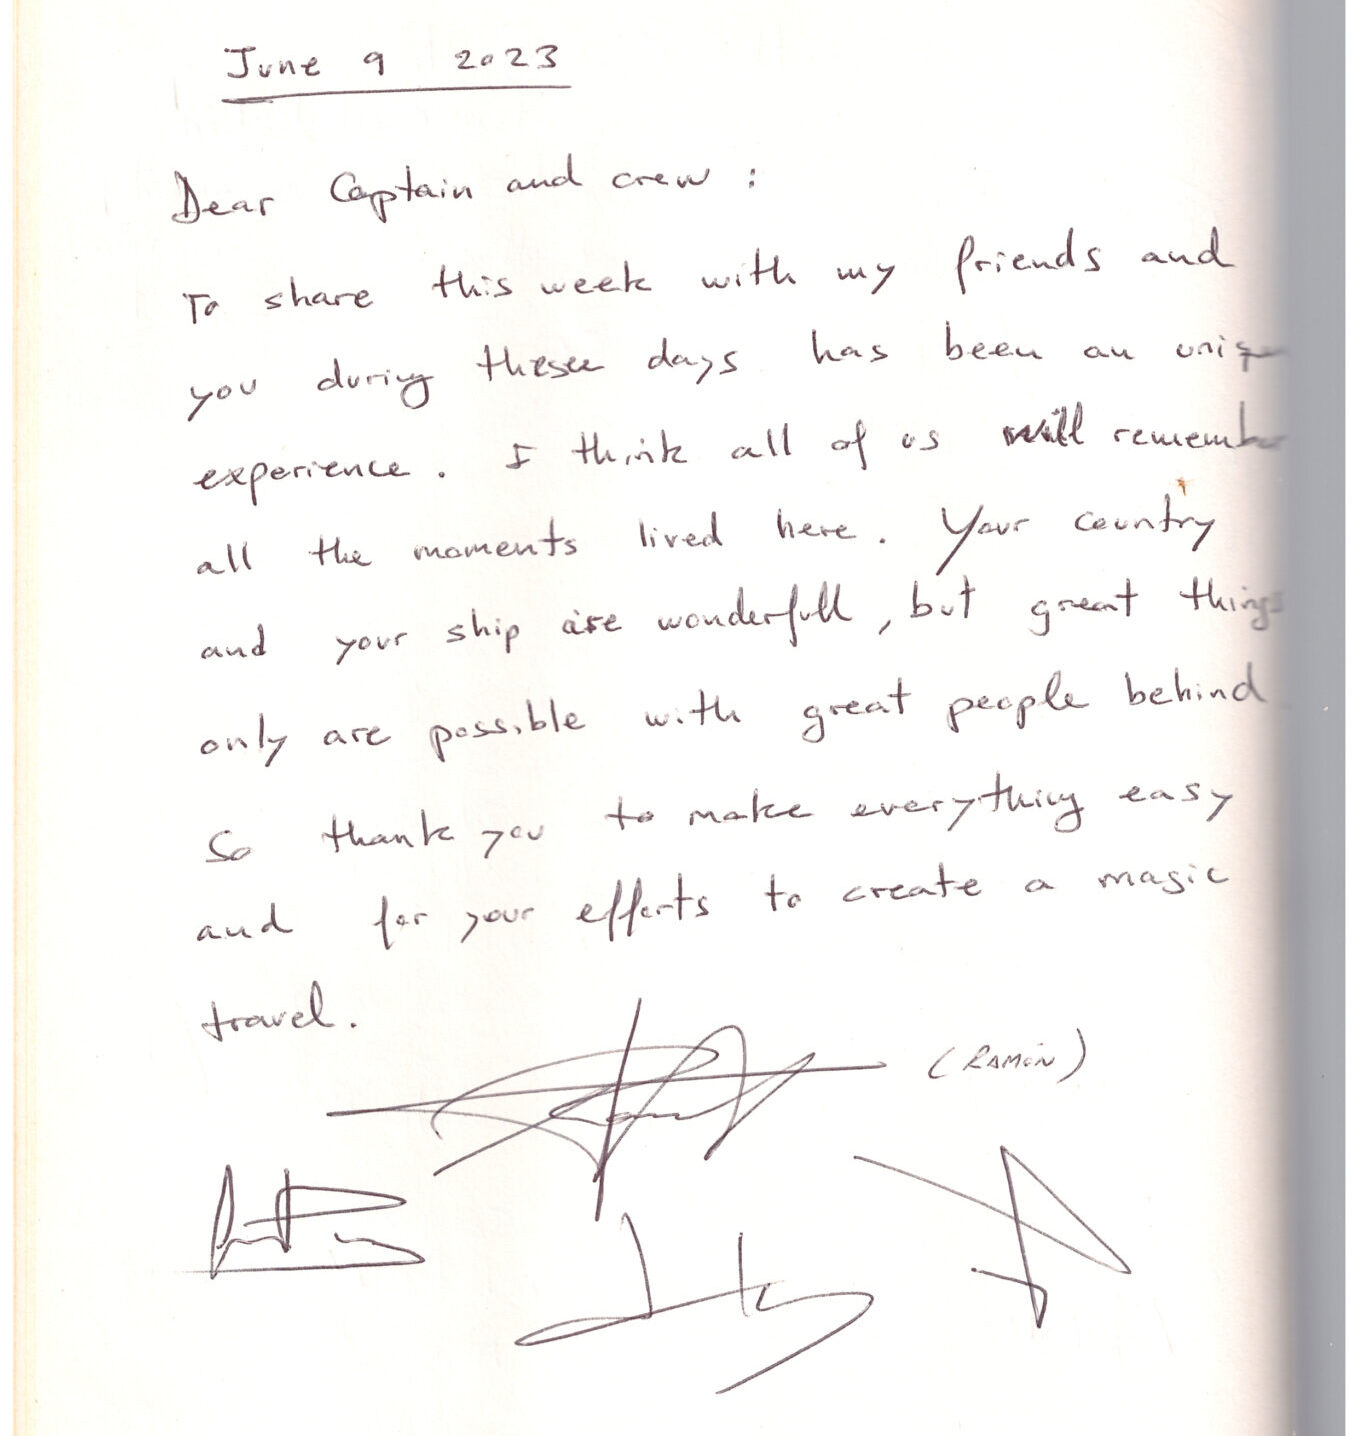 June 9 2023
Dear Captain and crew :
To share this week with my friends and
you during thesee days has been an uniq
experience. I think all of us will remembe
all the moments lived here. Your country
and your ship are wonderfull, but great things
only are possible with great people behind
So thank you to make everything easy
and for your efforts to create a magic
travel.
(RAMÓN)